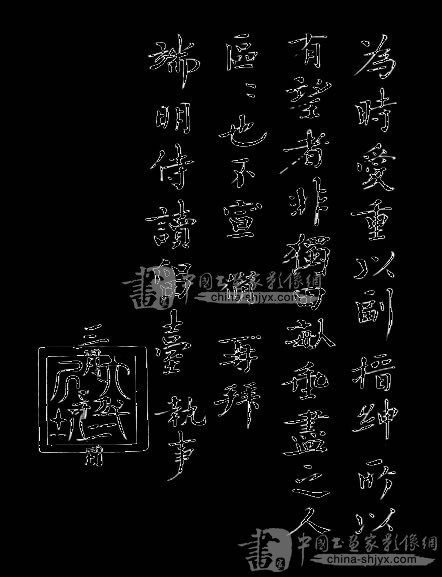 為時愛重以副搢紳所以
有望者非獨田畝垂盡之人
區〻也不宣 脩 再拜
端明侍讀留臺 執事
三月
書 中国书画家影像网
china-shjyx.com
書 中国书画家影像网
china-shjyx.com